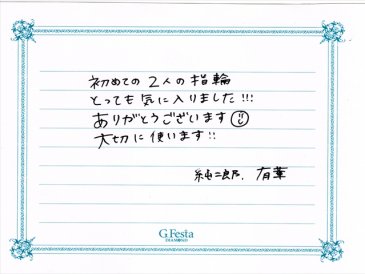 初めての2人の指輪
とっても気に入りました!!!
ありがとうございます
大切に使います!!
純二郎. 有華
G.Festa
DIAMOND